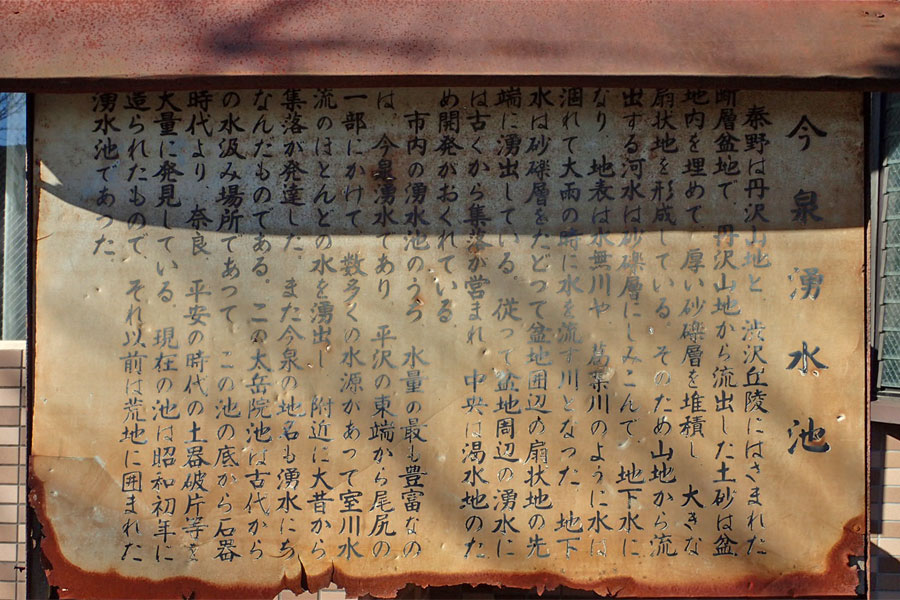 今泉湧水池
秦野は丹沢山地と 渋沢丘陵にはさまれた
断層盆地で、丹沢山地から流出した土砂は盆
地内を埋めて、厚い砂礫層を堆積し 大きな
扇状地を形成している そのため山地から流
出する河水は砂礫層にしみこんで、地下水に
なり 地表は水無川や 葛葉川のように水は
涸れて大雨の時に水を流す川となった、地下
水は砂礫層をたどって盆地囲辺の扇状地の先
端に湧出している。従って盆地周辺の湧水に
は古くから集落が営まれ 中央は渇水地のた
め開発がおくれている。
市内の湧水池のうち 水量の最も豊富なの
は、今泉湧水であり 平沢の東端から尾尻の
一部にかけて、数多くの水源があって室川水
流のほとんどの水を湧出し 附近に大昔から
集落が発達した、また今泉の地名も湧水にち
なんだものである。この太岳院池は古代から
の水汲み場所であって この池の底から石器
時代より、奈良 平安の時代の土器破片等を
大量に発見している。現在の池は昭和初年に
造られたもので、それ以前は荒地に囲まれた
湧水池であった、